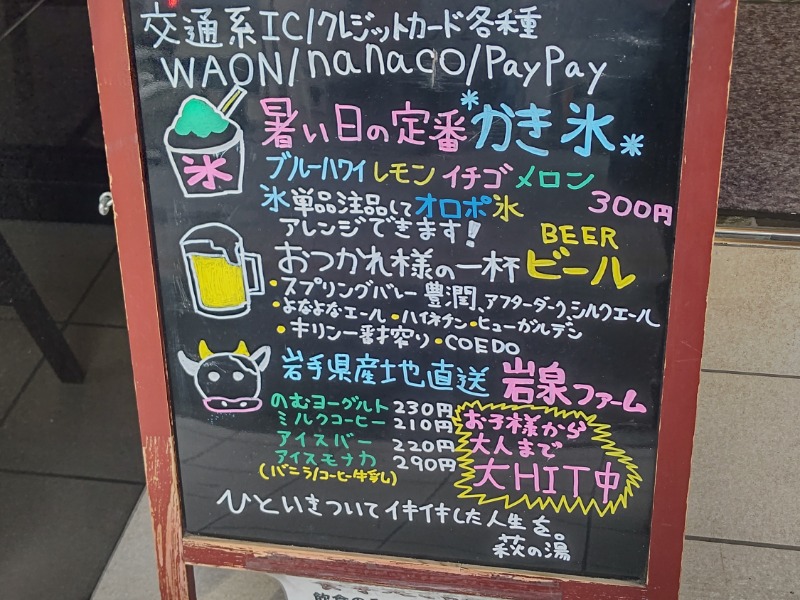 交通系IC/クレジットカード各種
WAON/nanaco/PayPay
暑い日の定番*かき氷*
氷
ブルーハワイ レモン イチゴ メロン
300円
氷単品注品してオロポ氷
アレンジできます!
BEER
おつかれ様の一杯 ビール
・スプリングバレー 豊潤、アフターダーク、シルクエール
・よなよなエール・ハイネケン・ヒューガルデン
・キリン一番搾り・COEDO
岩手県産地直送 岩泉ファーム
のむヨーグルト 230円
ミルクコーヒー 210円
アイスバー 220円
アイスモナカ 290円
(バニラ/コーヒー牛乳)
お子様から
大人まで
大HIT中
ひといきついてイキイキした人生を。
萩の湯